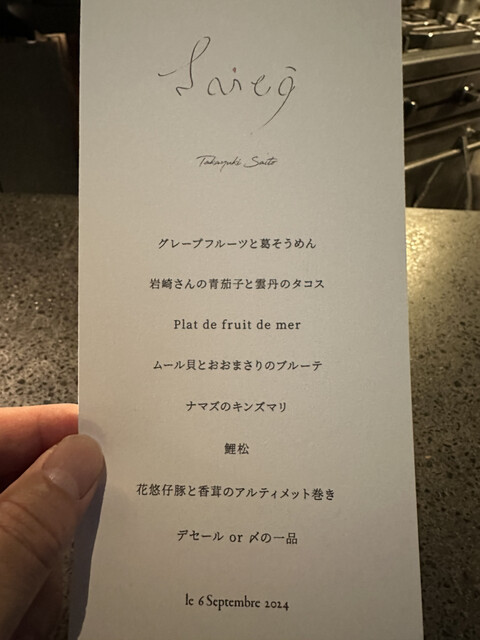 Takayuki Saito
グレープフルーツと葛そうめん
岩崎さんの青茄子と雲丹のタコス
Plat de fruit de mer
ムール貝とおおまさりのブルーテ
ナマズのキンズマリ
鯉松
花悠仔豚と香茸のアルティメット巻き
デセール or 〆の一品
le 6 Septembre 2024